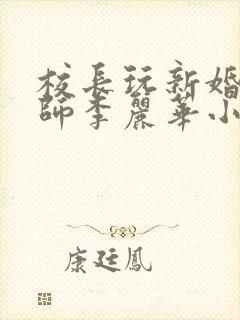 校長玩新婚
師李麗華小
康廷鳳